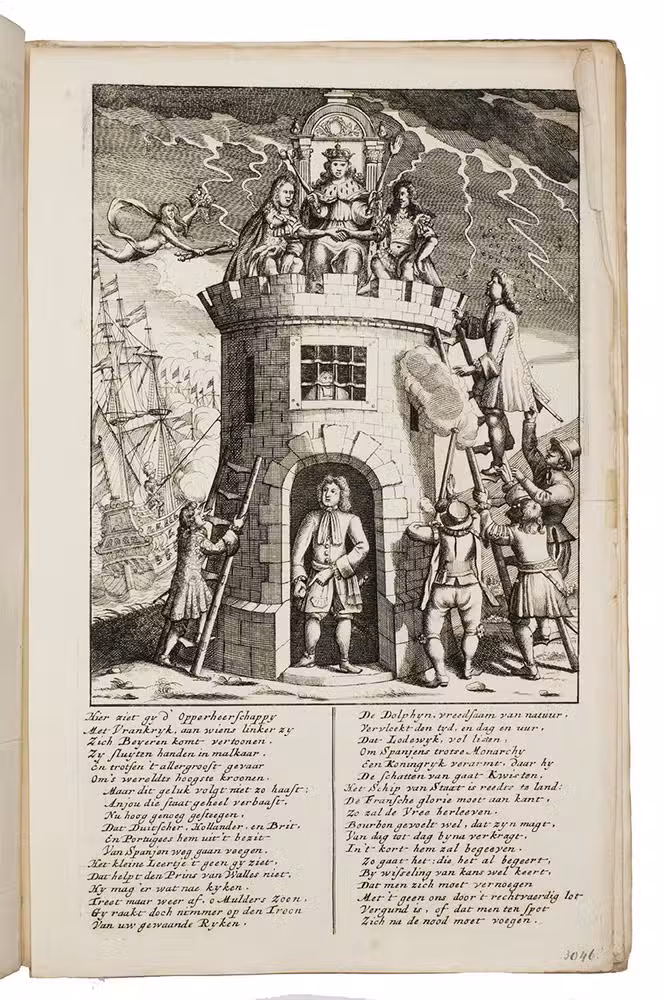 Hier ziet gy d' Opperheerschappy
Met Vrankryk, aan wiens linker zy
Zich Beyeren komt vertoonen.
Zy sluyten handen in malkaar,
En trotsen 't allergrootst gevaar
Om's wereldts hoogste kroonen.
Maar dit geluk volgt niet zo haast:
Anjou die staat geheel verbaast,
Nu hoog genoeg gesteegen,
Dat Duitscher, Hollander, en Brit,
En Portugees hem uit 't bezit
Van Spanjen weg gaan veegen.
Het kleine Leertje t geen gy ziet,
Dat helpt den Prins van Walles niet,
Hy mag er wat nae kyken.
Treet maar weer af, o Mulders Zoon,
Gy raakt doch nimmer op den Troon
Van uw gewaande Ryken.
De Dolphyn, vreedsaam van natuur,
Vervloekt den tyd, en dag en uur,
Dat Lodewyk, vol listen,
Om Spanjens trotse Monarchy
Een Koningryk verarmt, daar hy
De schatten van gaat Kwisten.
Het Schip van Staat is reedts te land:
De Fransche glorie moet aan kant,
Zo zal de Vree herleeven.
Bourbon gevoelt wel, dat zyn magt,
Van dag tot dag byna verkragt,
In't kort hem zal begeeven.
Zo gaat het: die het al begeert,
By wisseling van kans wel keert,
Dat men zich moet vernoegen
Met 't geen ons door 't rechtvaerdig lot
Vergund is, of dat men ten spot
Zich na de nood moet voegen.
3046.